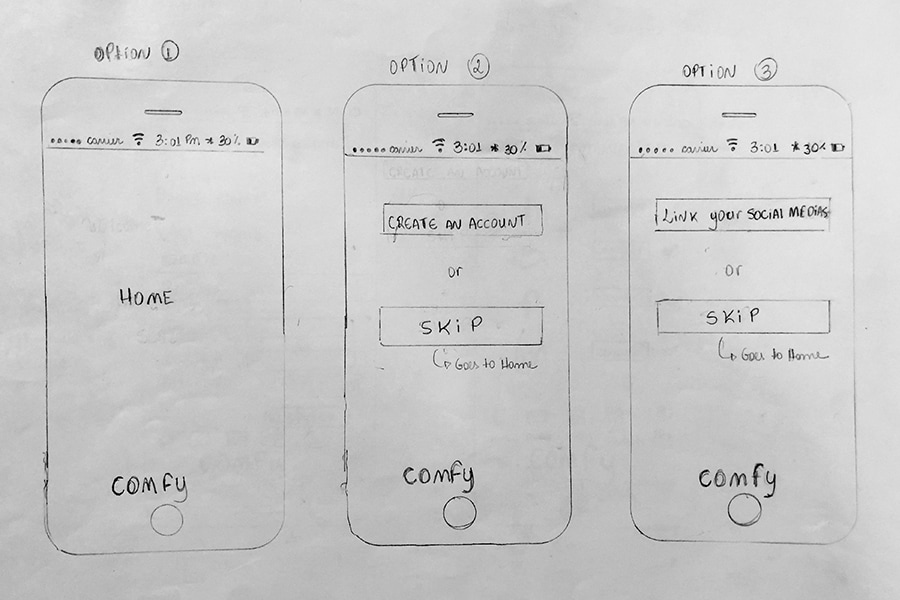 OPTION 1
carrier 3:01 PM * 30%
HOME
COMFY
OPTION 2
carrier 3:01 * 30%
CREATE AN ACCOUNT
CREATE AN ACCOUNT
or
SKIP
Goes to Home
COMFY
OPTION 3
carrier 3:01 * 30%
LINK your SOCIAL MEDIAS
or
SKIP
Goes to Home
COMFY